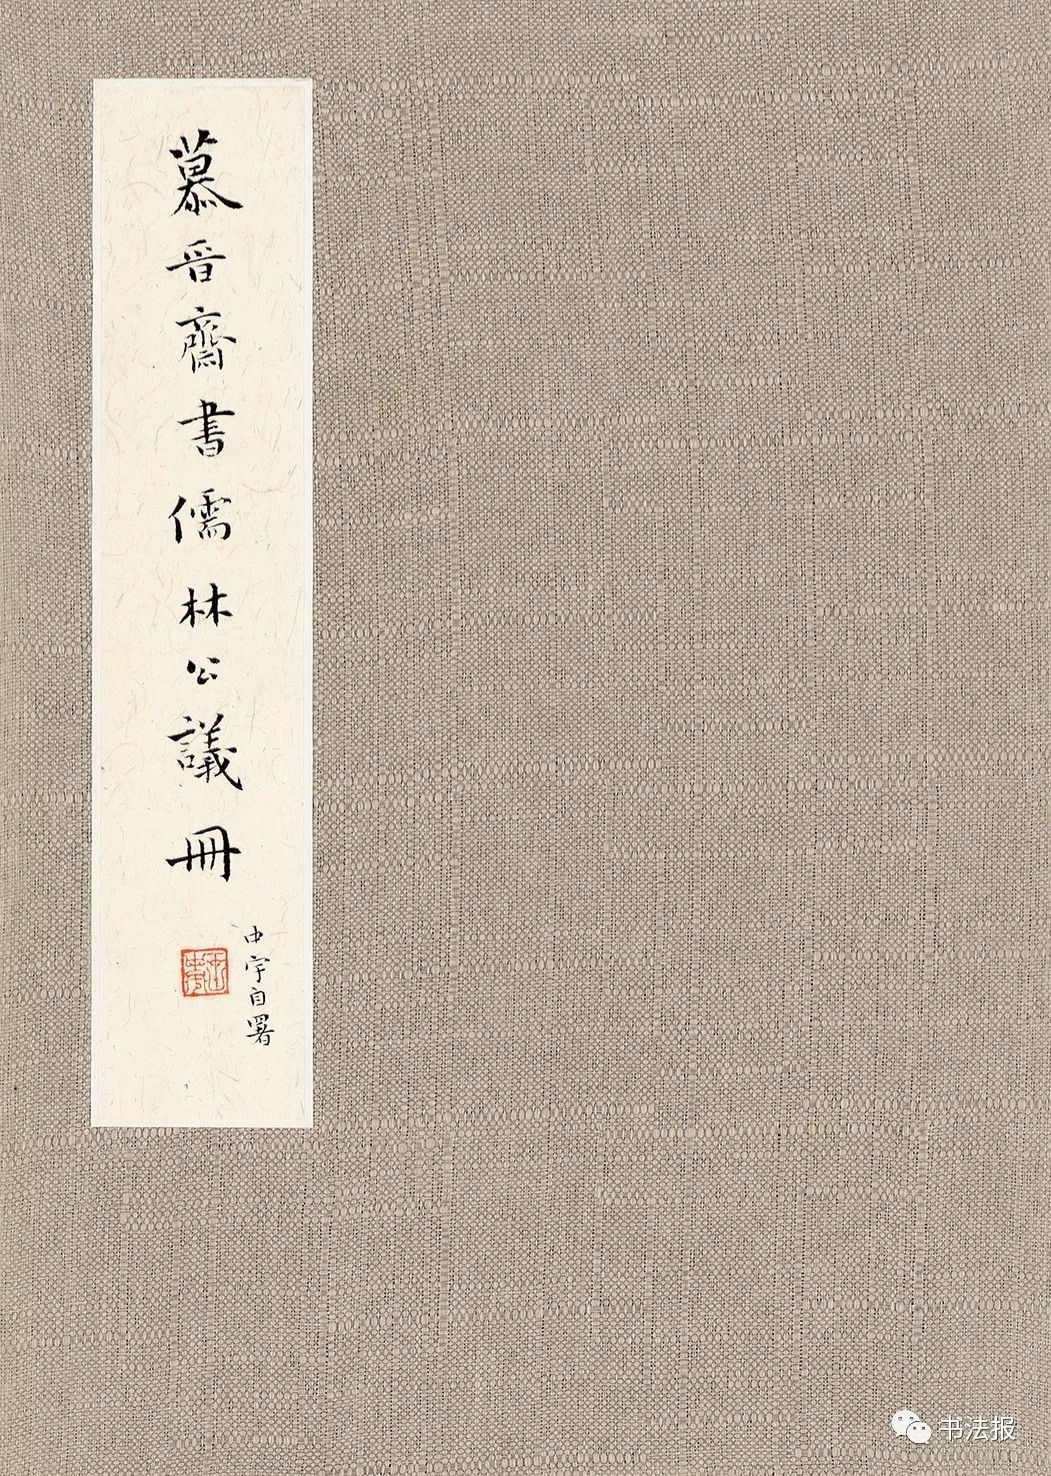 慕晉齋書儒林公議冊
中宇自署
书法报